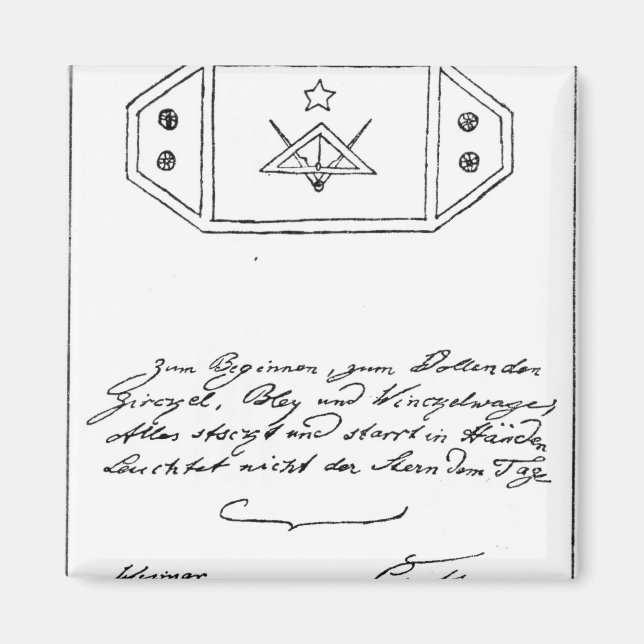 Zum Beginnen, zum Vollenden
Zirckel, Bley und Winckelwage,
Alles stockt und starrt in Händen
Leuchtet nicht der Stern dem Tage
Weimar